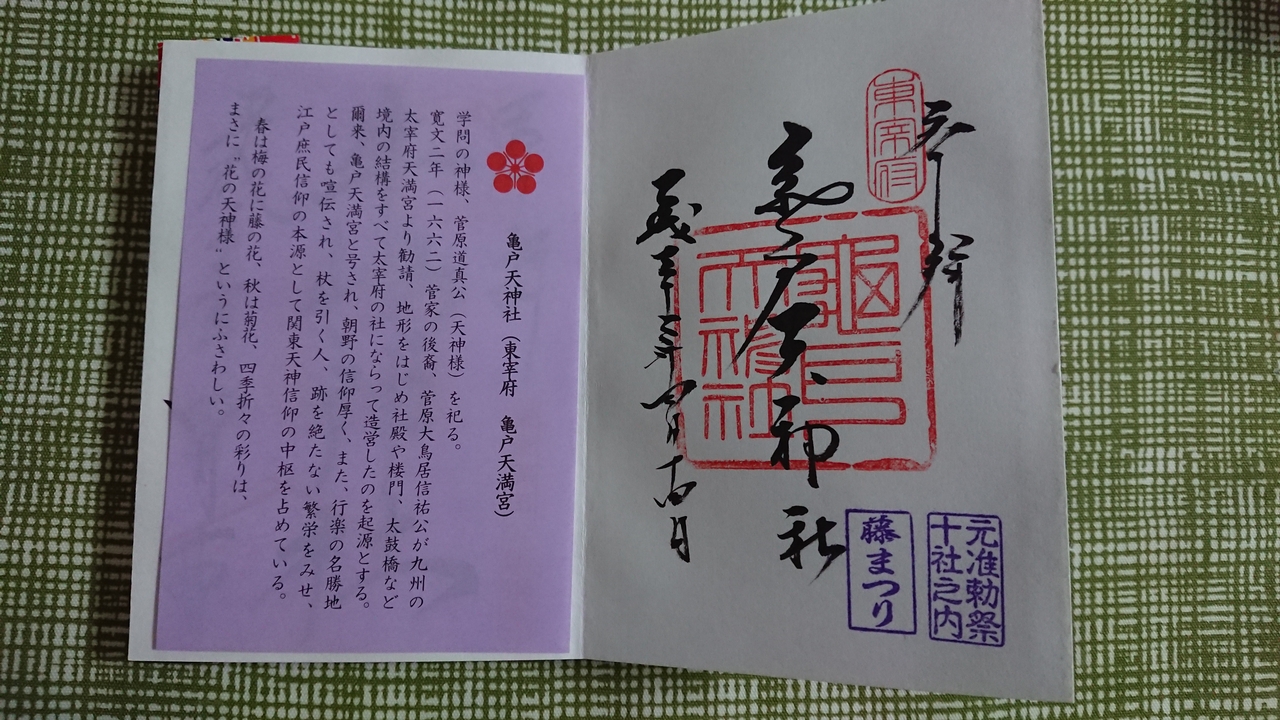 奉拝
東宰府
亀戸天神社
亀戸天神社
平成三十年四月廿四日
元准勅祭
十社之内
藤まつり
亀戸天神社(東宰府 亀戸天満宮)
学問の神様、菅原道真公(天神様)を祀る。
寛文二年(一六六二)菅家の後裔、菅原大鳥居信祐公が九州の
太宰府天満宮より勧請、地形をはじめ社殿や楼門、太鼓橋など
境内の結構をすべて太宰府の社にならって造営したのを起源とする。
爾来、亀戸天満宮と号され、朝野の信仰厚く、また、行楽の名勝地
としても喧伝され、杖を引く人、跡を絶たない繁栄をみせ、
江戸庶民信仰の本源として関東天神信仰の中枢を占めている。
春は梅の花に藤の花、秋は菊花、四季折々の彩りは、
まさに〝花の天神様〟というにふさわしい。